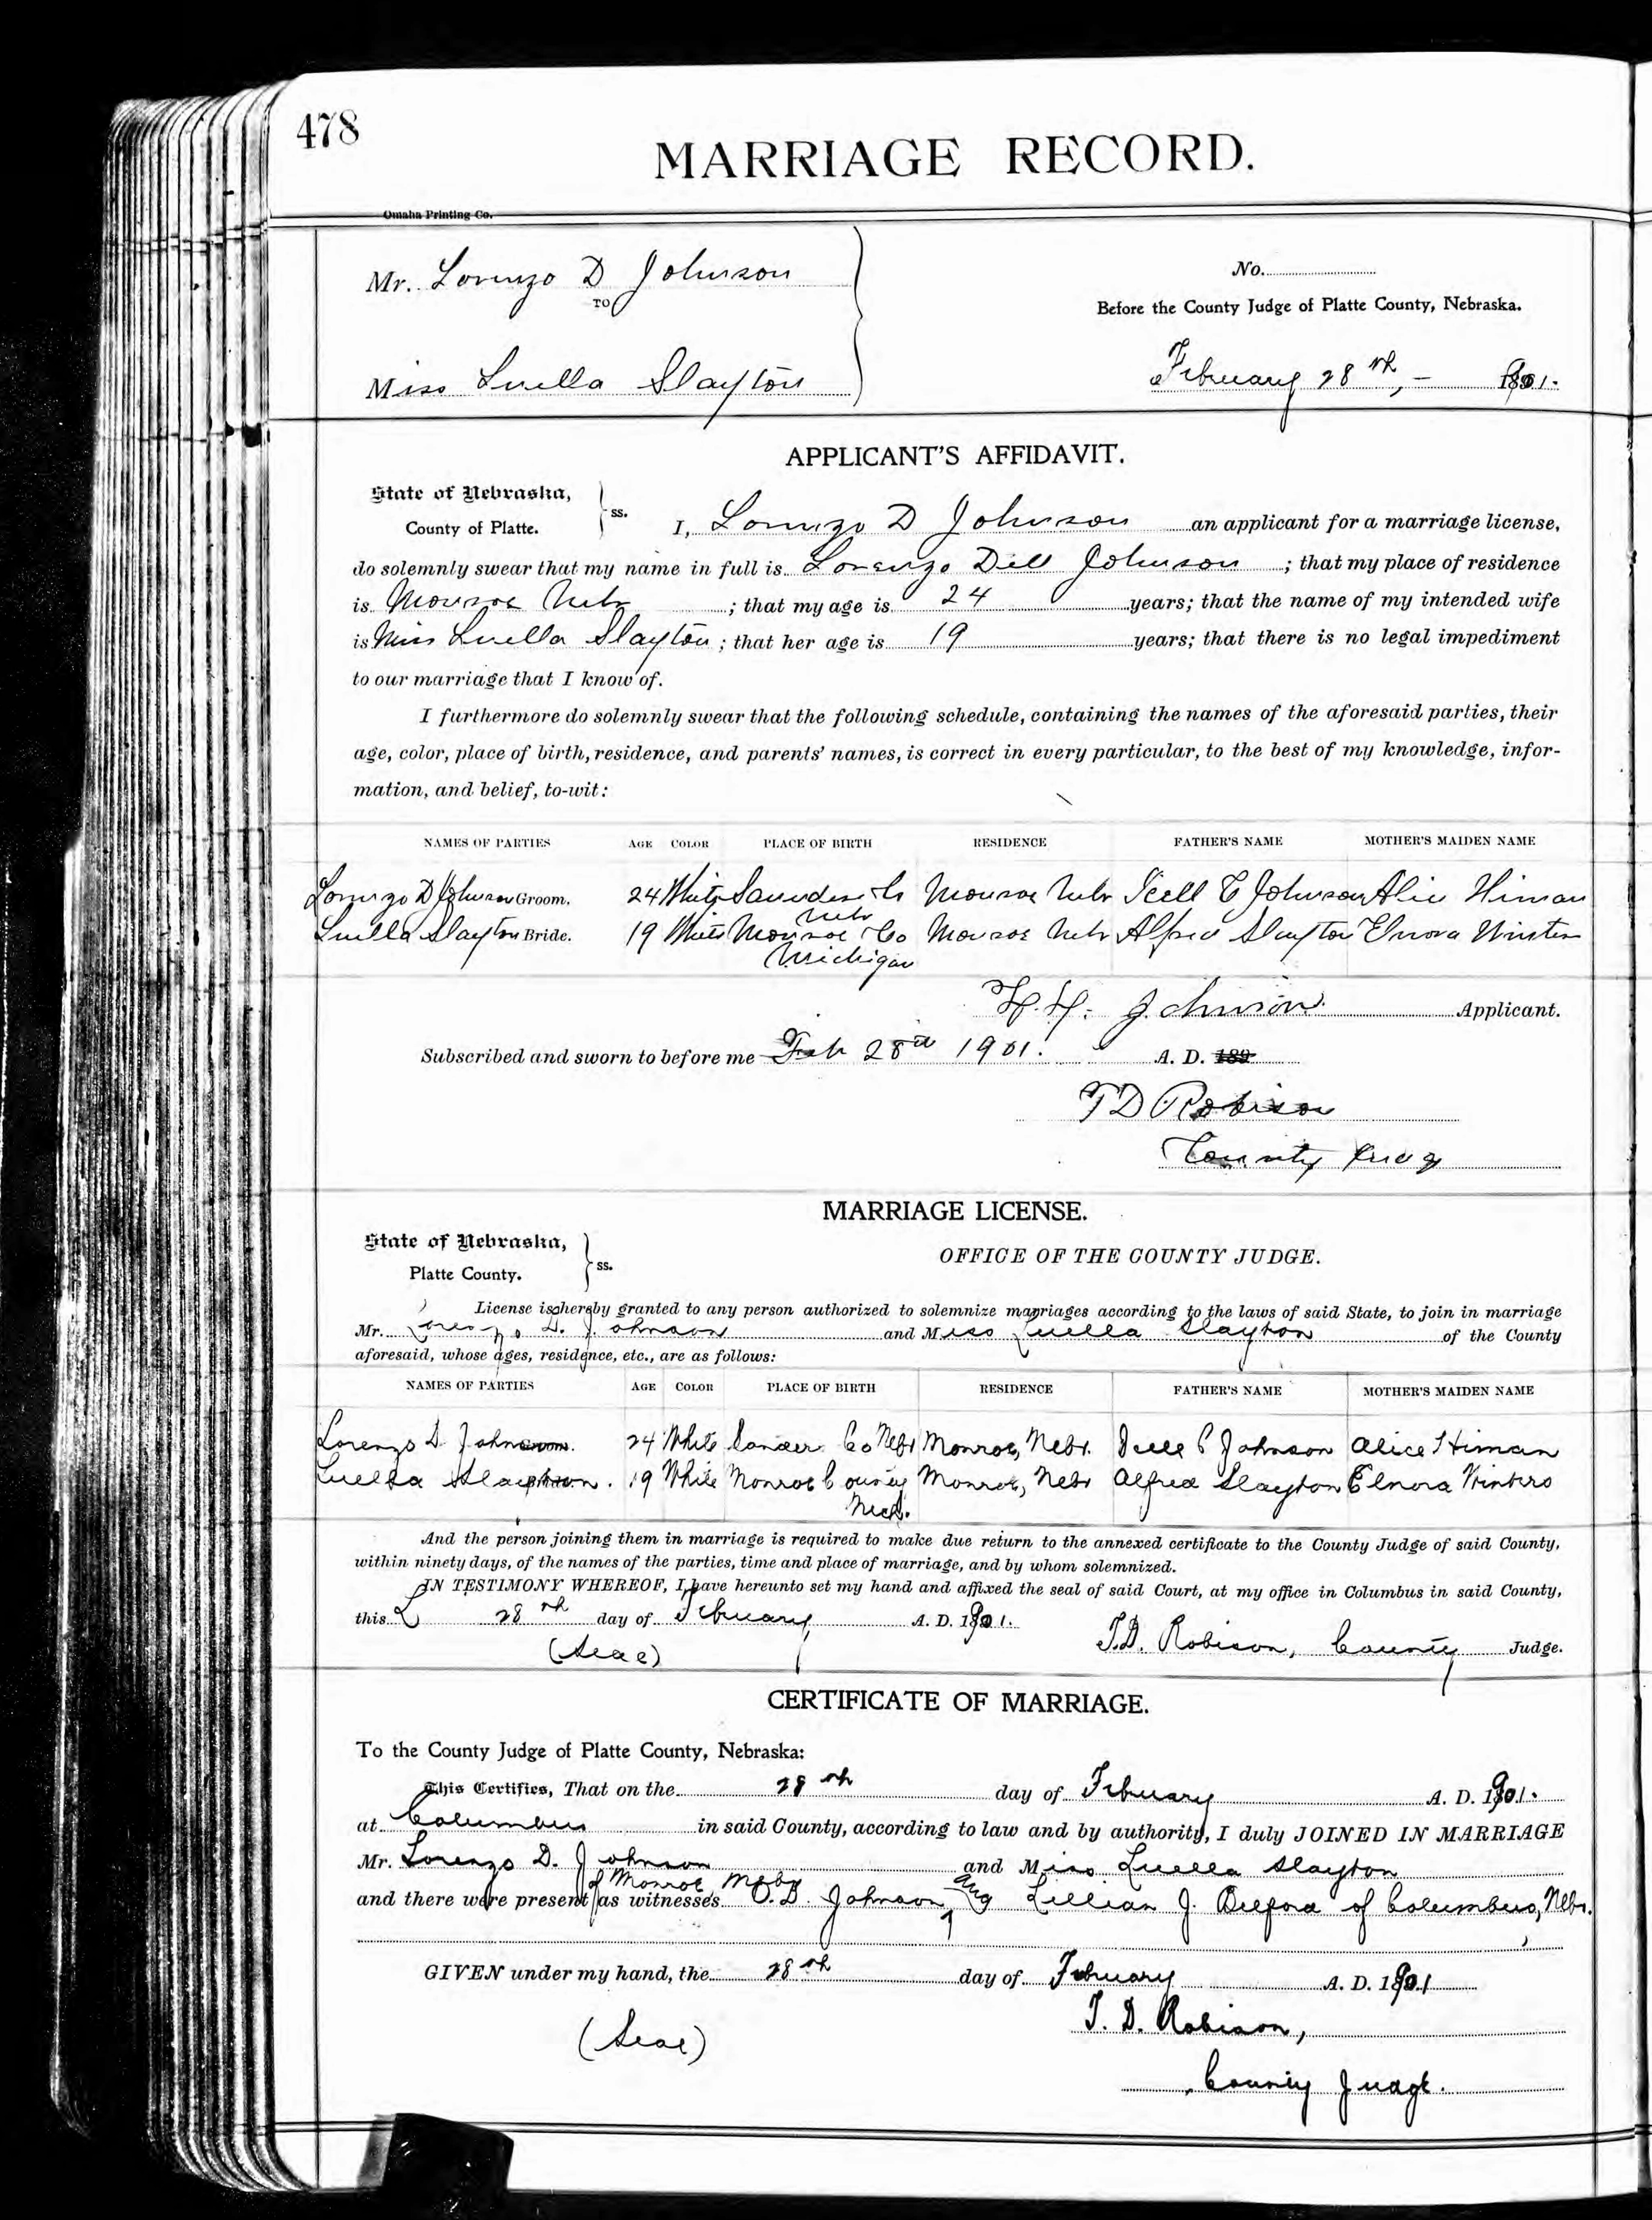 478
MARRIAGE RECORD.
Omaha Printing Co.
Mr. Lorenzo D Johnson
TO
Miss Luella Slayton
No.
Before the County Judge of Platte County, Nebraska.
February 28th, - 1901.
APPLICANT'S AFFIDAVIT.
State of Nebraska,
County of Platte.
ss.
I, Lorenzo D Johnson an applicant for a marriage license,
do solemnly swear that my name in full is Lorenzo Dell Johnson ; that my place of residence
is Monroe Nebr ; that my age is 24 years; that the name of my intended wife
is Miss Luella Slayton ; that her age is 19 years; that there is no legal impediment
to our marriage that I know of.
I furthermore do solemnly swear that the following schedule, containing the names of the aforesaid parties, their
age, color, place of birth, residence, and parents' names, is correct in every particular, to the best of my knowledge, infor-
mation, and belief, to-wit:
NAMES OF PARTIES AGE COLOR PLACE OF BIRTH RESIDENCE FATHER'S NAME MOTHER'S MAIDEN NAME
Lorenzo D Johnson Groom. 24 White Saunders Co Nebr Monroe Nebr Johnson Alice Himan
Luella Slayton Bride. 19 White Monroe Co Michigan Monroe Nebr Alfred Slayton Elnora Winters
Johnson Applicant.
Subscribed and sworn to before me Feb 28th 1901. A. D. 189
T D Robison
County Judg
MARRIAGE LICENSE.
State of Nebraska,
Platte County.
ss.
OFFICE OF THE COUNTY JUDGE.
License is hereby granted to any person authorized to solemnize marriages according to the laws of said State, to join in marriage
Mr. Lorenzo D. Johnson and Miss Luella Slayton of the County
aforesaid, whose ages, residence, etc., are as follows:
NAMES OF PARTIES AGE COLOR PLACE OF BIRTH RESIDENCE FATHER'S NAME MOTHER'S MAIDEN NAME
Lorenzo D. Johnson. 24 White Co Nebr Monroe, Nebr. Johnson Alice Himan
Luella Slayton. 19 White Monroe County Mich. Monroe, Nebr Alfred Slayton Elnora Winters
And the person joining them in marriage is required to make due return to the annexed certificate to the County Judge of said County,
within ninety days, of the names of the parties, time and place of marriage, and by whom solemnized.
IN TESTIMONY WHEREOF, I have hereunto set my hand and affixed the seal of said Court, at my office in Columbus in said County,
this 28th day of February A. D. 1901.
(Seal)
T.D. Robison, County Judge.
CERTIFICATE OF MARRIAGE.
To the County Judge of Platte County, Nebraska:
This Certifies, That on the 28th day of February A. D. 1901.
at Columbus in said County, according to law and by authority, I duly JOINED IN MARRIAGE
Mr. Lorenzo D. Johnson and Miss Luella Slayton
of Monroe Nebr
and there were present as witnesses O. D. Johnson, and Lillian J. Belford of Columbus, Nebr.
GIVEN under my hand, the 28th day of February A. D. 1901
(Seal)
T. D. Robison,
County Judge.